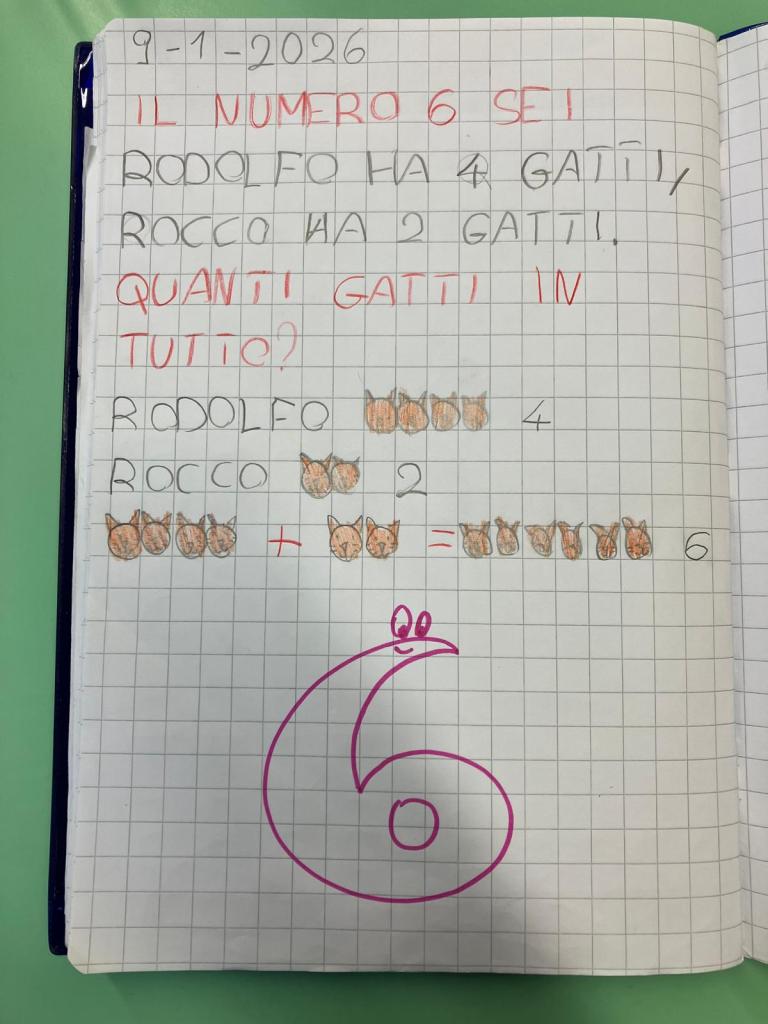 9-1-2026
IL NUMERO 6 SEI
RODOLFO HA 4 GATTI,
ROCCO HA 2 GATTI.
QUANTI GATTI IN
TUTTO?
RODOLFO 4
ROCCO 2
+ = 6
6